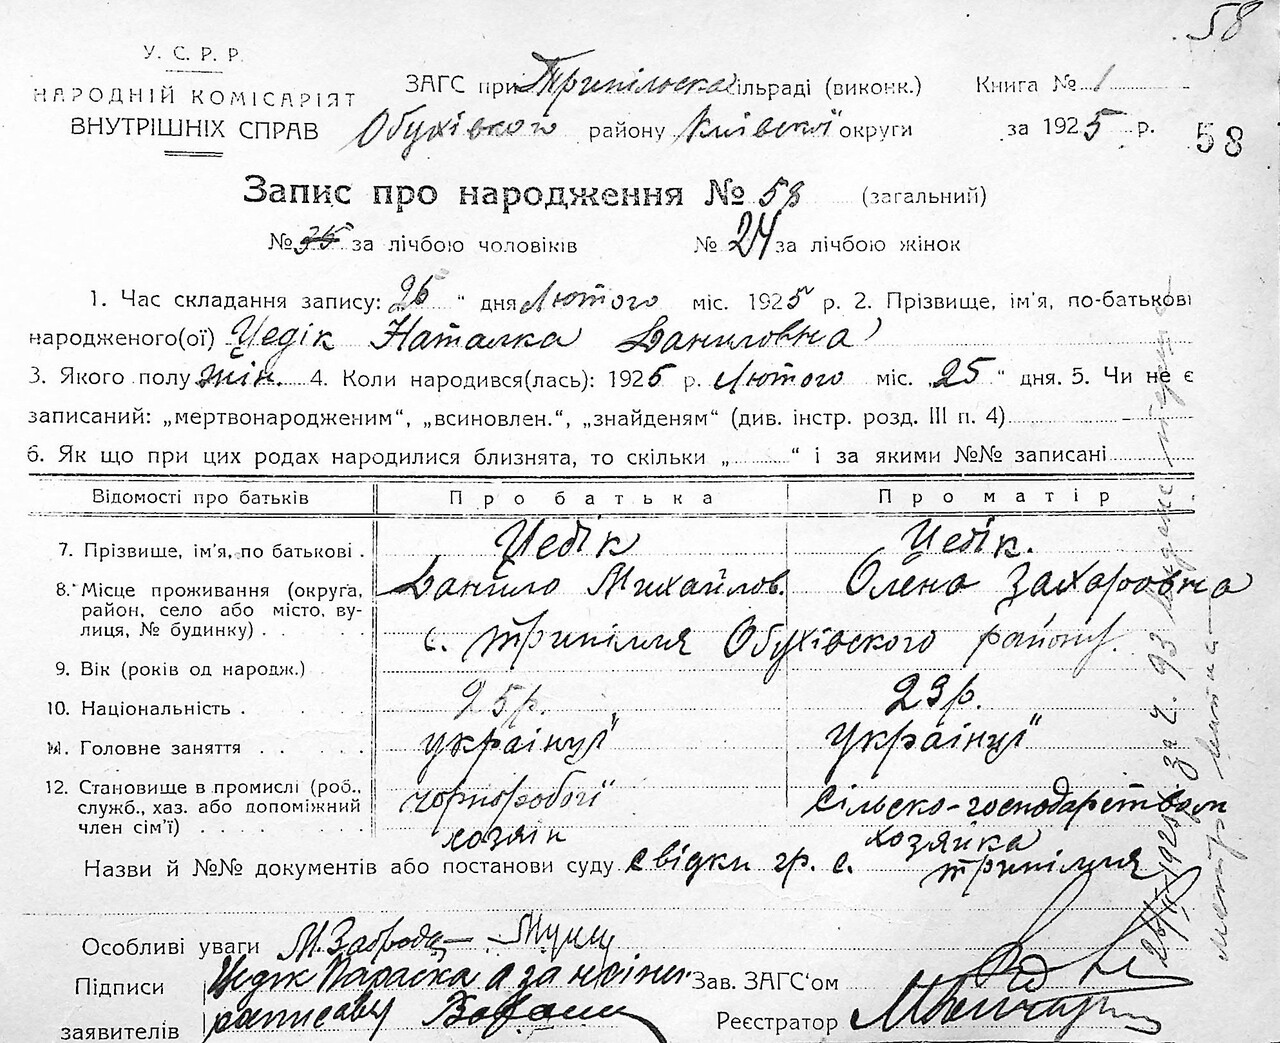 58
У. С. Р. Р.
НАРОДНІЙ КОМІСАРІЯТ
ВНУТРІШНІХ СПРАВ
ЗАГС при Трипільска сільраді (виконк.) Книга № 1
Обухівского району Київскої округи за 1925 р. 58
Запис про народження № 58 (загальний)
№ за лічбою чоловіків № 24 за лічбою жінок
1. Час складання запису: 26 " дня Лютого міс. 1925 р. 2. Прізвище, ім'я, по-батькові
народженого(ої) Цедік Наталка Даниловна
3. Якого полу жін. 4. Коли народився(лась): 1925 р. Лютого міс. 25 " дня. 5. Чи не є
записаний: „мертвонародженим“, „всиновлен.“, „знайденям“ (див. інстр. розд. III п. 4)
6. Як що при цих родах народилися близнята, то скільки „ “ і за якими №№ записані
Відомості про батьків Про батька Про матір
7. Прізвище, ім'я, по батькові . Цедік Цедік.
8. Місце проживання (округа, Даніло Михайлов. Олена Захаровна
район, село або місто, ву-
лиця, № будинку) . . с. Трипілля Обухівского району.
9. Вік (років од народж.) 25 р. 23 р.
10. Національність . українці українці
11. Головне заняття чорноробочі сільско-господарством
12. Становище в промислі (роб., хозяін хозяйка
служб., хаз. або допоміжний
член сім'ї)
Назви й №№ документів або постанови суду свідки гр. с. Трипілля
Особливі уваги М. Заброда
Підписи Цедік Параска а за
заявителів росписався
Зав. ЗАГС'ом
Реєстратор